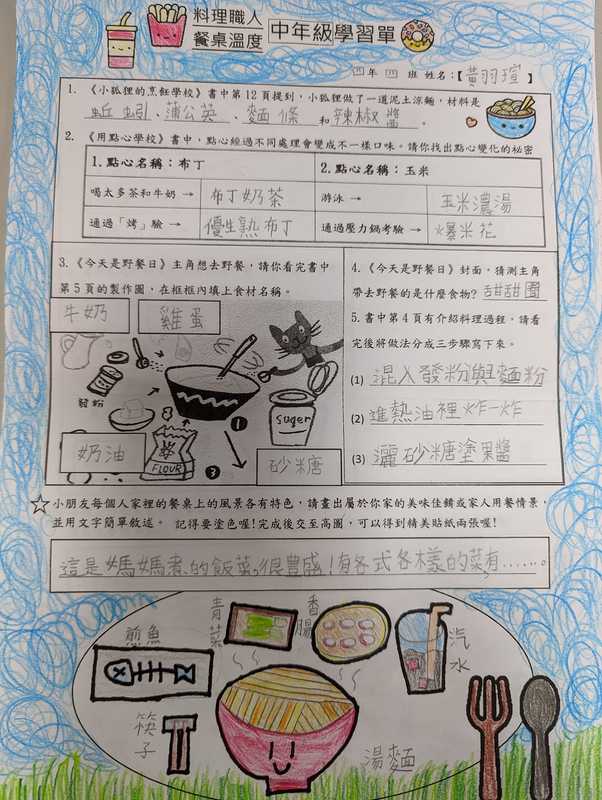 料理職人
餐桌溫度
中年級學習單
四年 四 班 姓名:【黃羽瑄】
1. 《小狐狸的烹飪學校》書中第12頁提到,小狐狸做了一道泥土涼麵,材料是
蚯蚓、蒲公英、麵條 和辣椒醬。
2. 《用點心學校》書中,點心經過不同處理會變成不一樣口味。請你找出點心變化的祕密
1. 點心名稱:布丁
2. 點心名稱:玉米
喝太多茶和牛奶→ 布丁奶茶
游泳→ 玉米濃湯
通過「烤」驗→ 優生熟布丁
通過壓力鍋考驗→ 爆米花
3. 《今天是野餐日》主角想去野餐,請你看完書中
第5頁的製作圖,在框框內填上食材名稱。
牛奶
雞蛋
發粉
suger
奶油
FLOUR
砂糖
1
2
3
4. 《今天是野餐日》封面,猜測主角
帶去野餐的是什麼食物? 甜甜圈
5. 書中第4頁有介紹料理過程,請看
完後將做法分成三步驟寫下來。
(1) 混入發粉與麵粉
(2) 進熱油裡炸一炸
(3) 灑砂糖塗果醬
小朋友每個人家裡的餐桌上的風景各有特色,請畫出屬於你家的美味佳餚或家人用餐情景,
並用文字簡單敘述。 記得要塗色喔!完成後交至高圖,可以得到精美貼紙兩張喔!
這是媽媽煮的飯菜。很豐盛!有各式各樣的菜,有……。
青菜
香腸
煎魚
汽水
筷子
湯麵